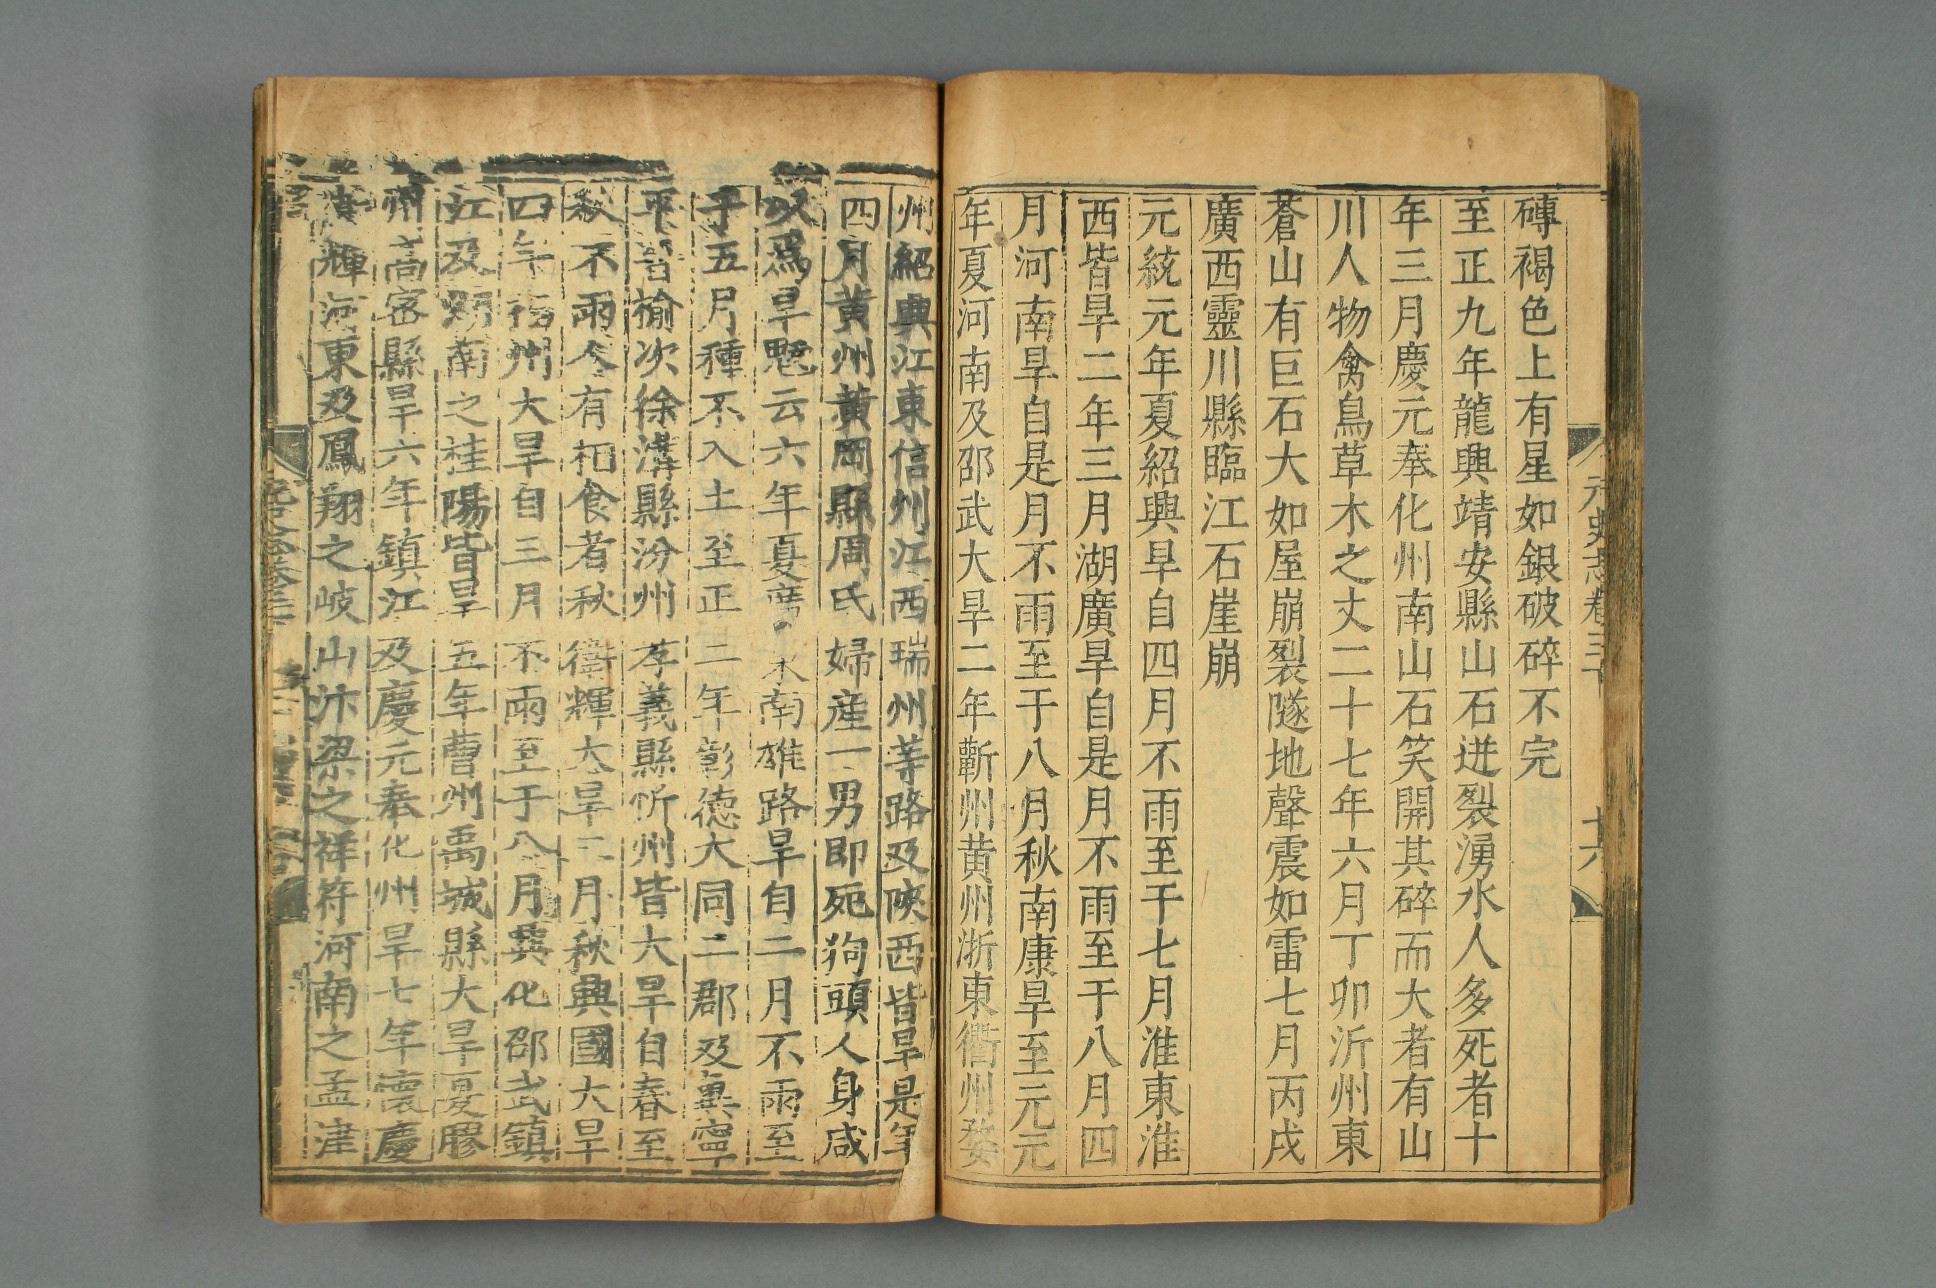 元史志卷三下
十六
磚褐色上有星如銀破碎不完
至正九年龍興靖安縣山石迸裂湧水人多死者十
年三月慶元奉化州南山石笑開其碎而大者有山
川人物禽鳥草木之文二十七年六月丁卯沂州東
蒼山有巨石大如屋崩裂隧地聲震如雷七月丙戌
廣西靈川縣臨江石崖崩
元統元年夏紹興旱自四月不雨至于七月淮東淮
西皆旱二年三月湖廣旱自是月不雨至于八月四
月河南旱自是月不雨至于八月秋南康旱至元元
年夏河南及邵武大旱二年蘄州黄州浙東衢州婺
州紹興江東信州江西瑞州等路及陝西皆旱是年
四月黄州黄岡縣周氏婦産一男即死狗頭人身咸
以爲旱魃云六年夏廣東南雄路旱自二月不雨至
于五月種不入土至正二年彰德大同二郡及冀寧
平晉榆次徐溝縣汾州孝義縣忻州皆大旱自春至
秋不雨人有相食者秋衛輝大旱三月秋興國大旱
四年福州大旱自三月不雨至于八月興化邵武鎮
江及湖南之桂陽皆旱五年曹州禹城縣大旱夏膠
州高密縣旱六年鎮江及慶元奉化州旱七年懷慶
衛輝河東及鳳翔之岐山汴梁之祥符河南之孟津